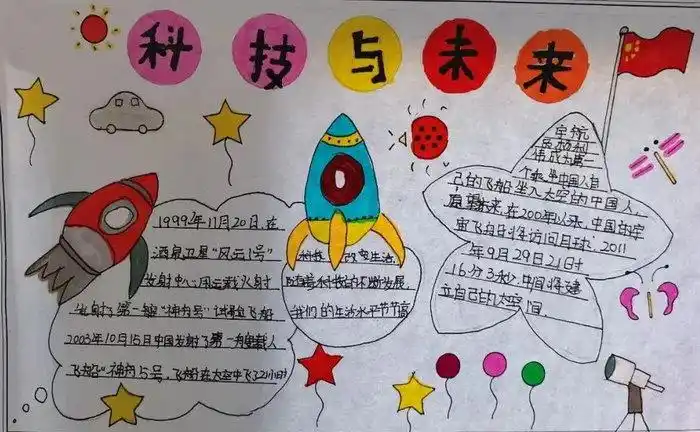 科技与未来
1999年11月20日,在
酒泉卫星"风云1号"
发射中心风云载火射
发射了第一艘"神舟号"试验飞船
2003年10月15日中国发射了第一艘载人
飞船"神舟5号,飞船在太空中飞了21小时
科技 改变生活
随着科技的不断发展,
我们的生活水平节节高
宇航
员杨利
伟成为第一
个乘坐中国人自
己的飞船坐入太空的中国人,
展望未来,在200年以来,中国的宇
宙飞船将访问月球,2011
年9月29日21时
16分3秒,中国将建
立自己的太空